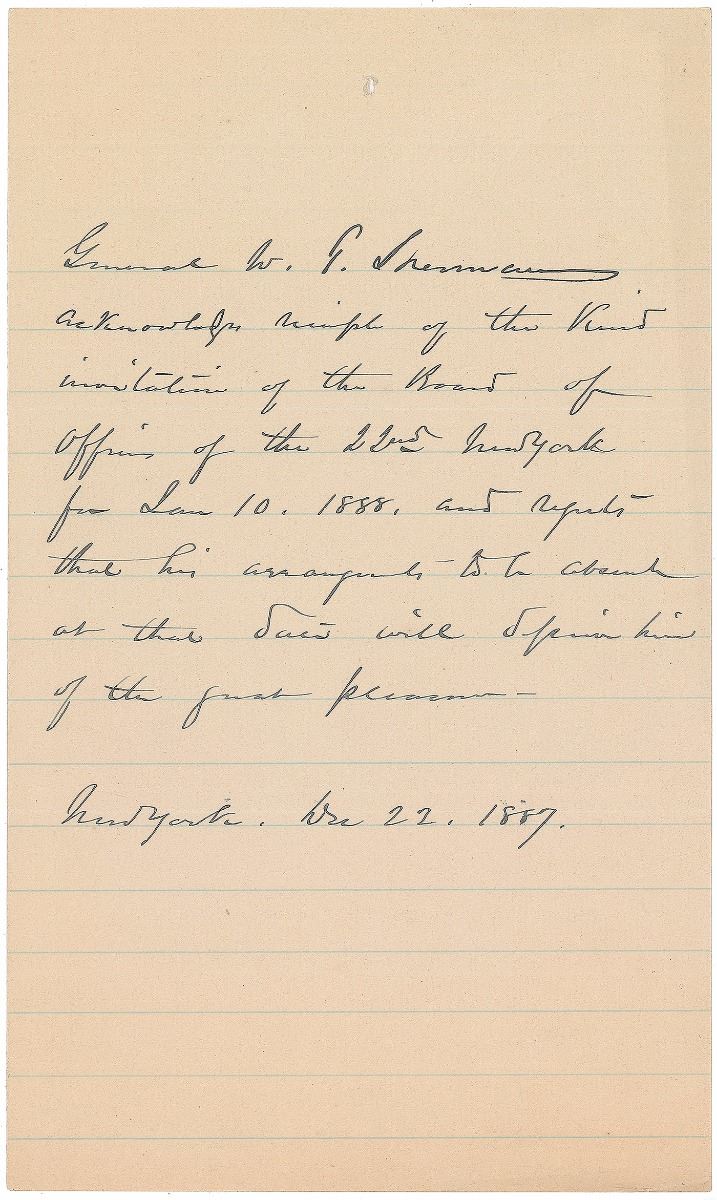 General W. T. Sherman
acknowledges receipt of the Kind
invitation of the Board of
Officers of the 22nd New York
for Jan 10. 1888. and regrets
that his arrangements to be absent
at that date will deprive him
of the great pleasure —
New York. Dec 22. 1887.